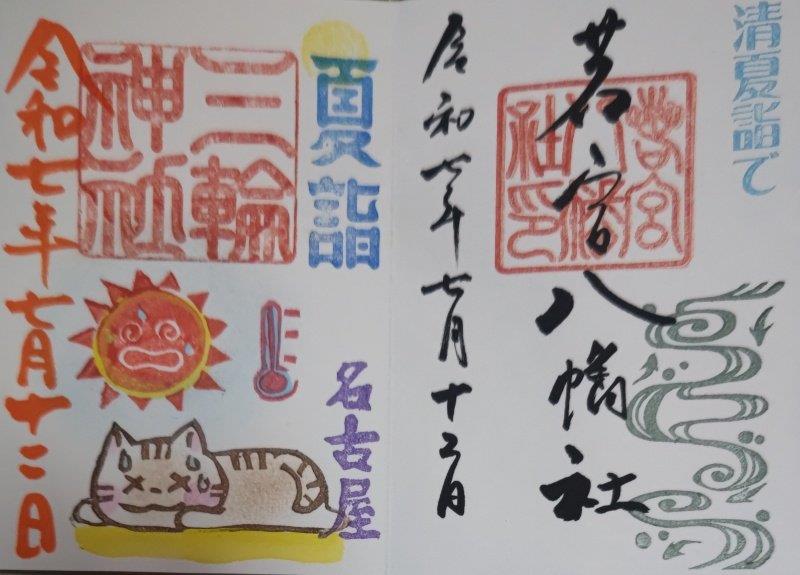 清夏詣で
若宮八幡社
若宮
八幡
社印
令和七年七月十二日
夏詣
名古屋
三輪
神社
令和七年七月十二日